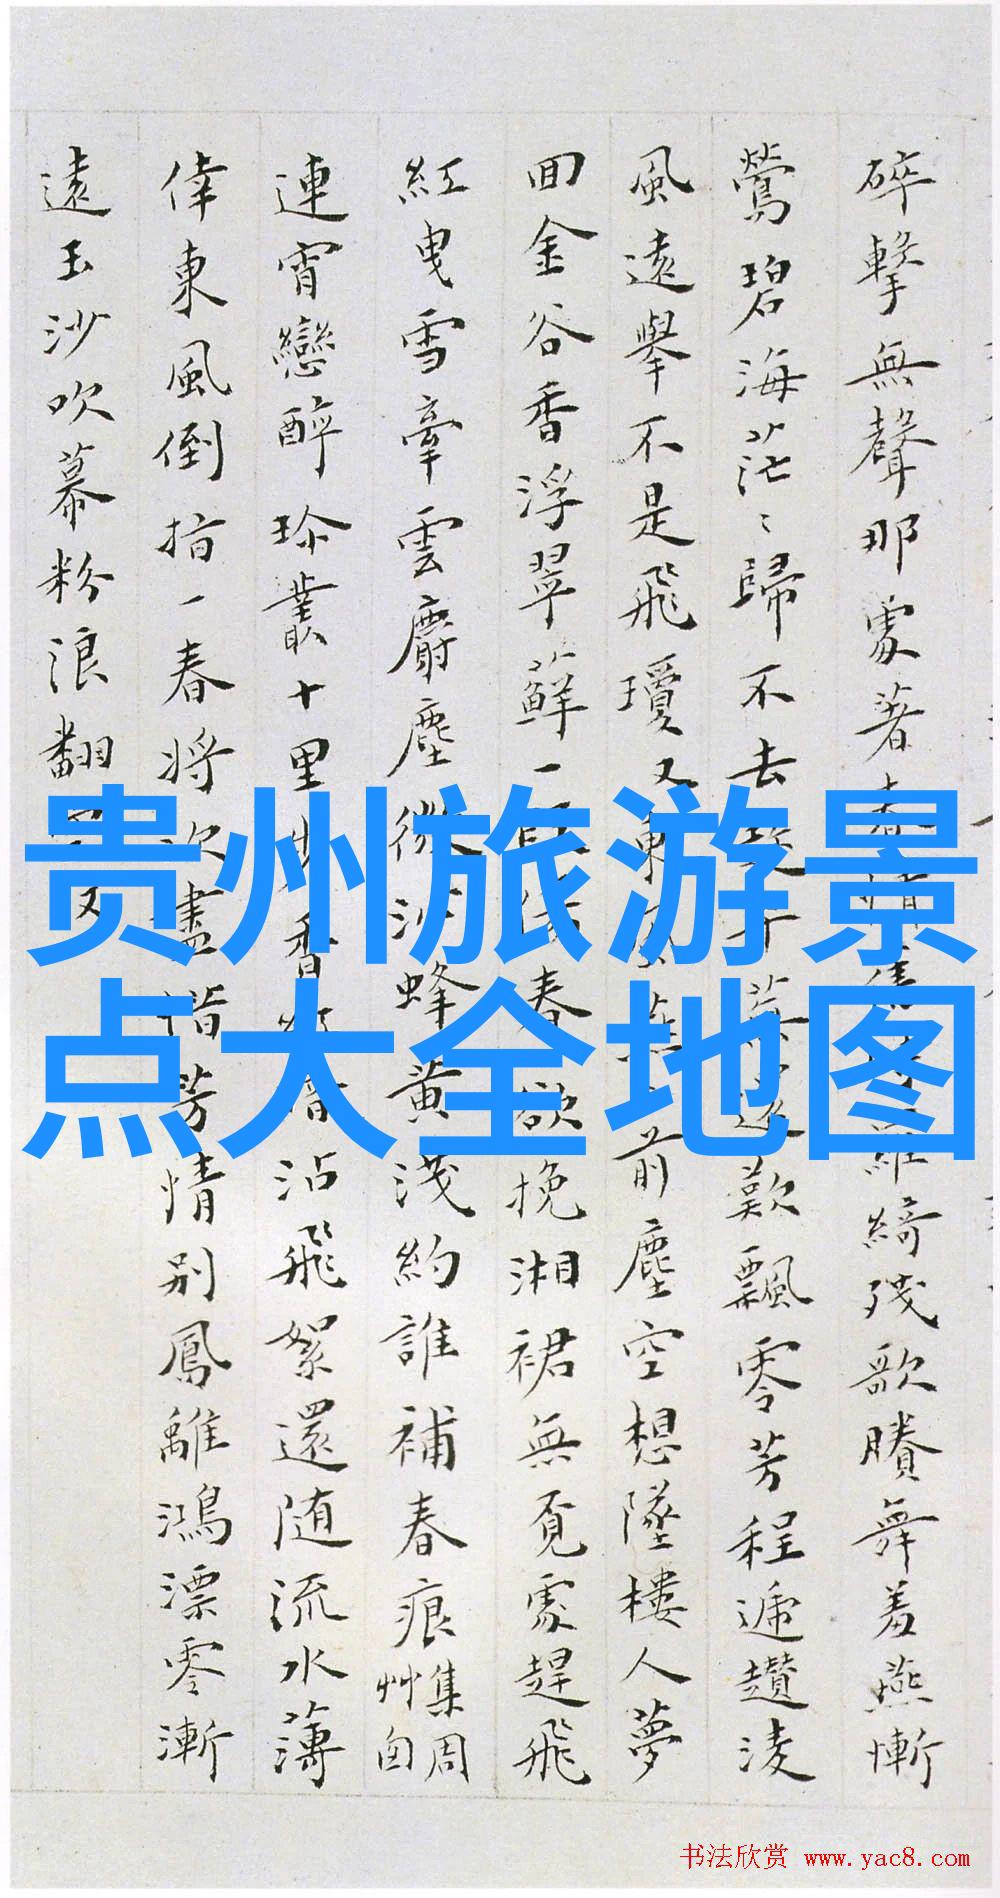 碎擎無聲那處著春情羅綺殘歌賸舞羞燕慚
鶯碧海茫〻歸不去歎飄零芳程遞趲淩
風遠舉不是飛瓊又東前塵空想墜樓人夢
回金谷香浮翠蘚一春欲挽湘裙無覓處趕飛
紅曳雪牽雲麝塵微沁蜂黃淺約誰補春痕
集周
艸囪
連宵戀醉珍叢十里香沾飛絮還随流水薄
倖東風倒指一春將次盡惜芳情別鳳離鴻漂零漸
遠玉沙吹幕粉浪翻又
贵州旅游景
点大全地图
书法欣赏 www.yac8.com